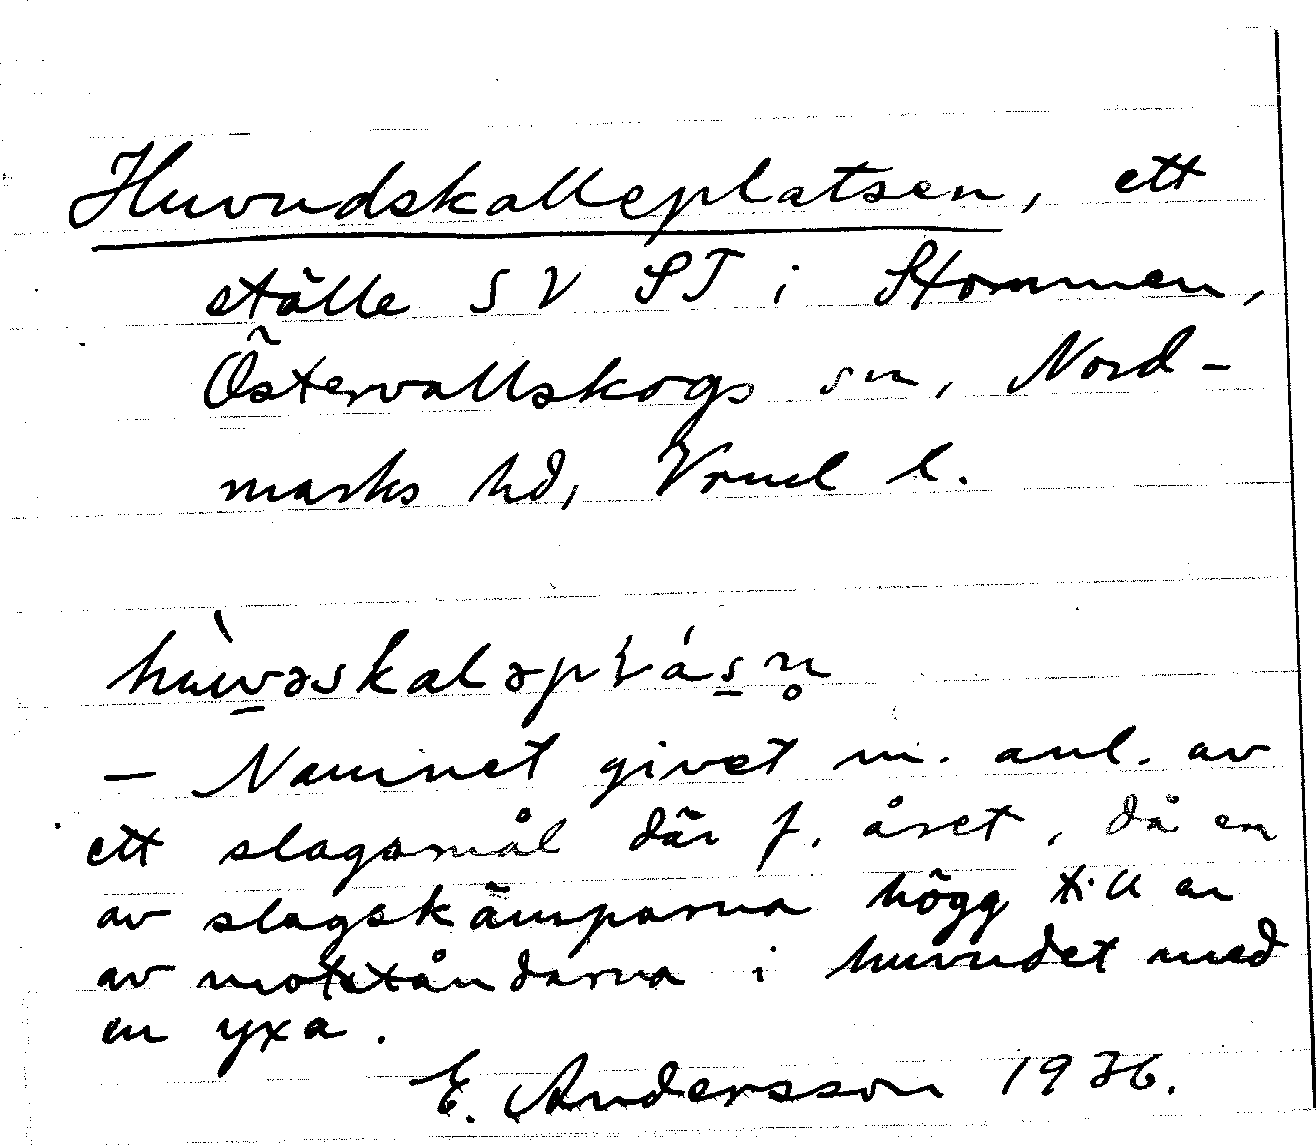 Huvudskalleplatsen, ett
ställe SV ST i Stommen,
Östervallskogs sn, Nord-
marks hd, Vrml l.
hùwəskaləpɫásn̥
— Namnet givet m. anl. av
ett slagsmål där f. året, då en
av slagskämparna högg till en
av motståndarna i huvudet med
en yxa.
E. Andersson 1936.